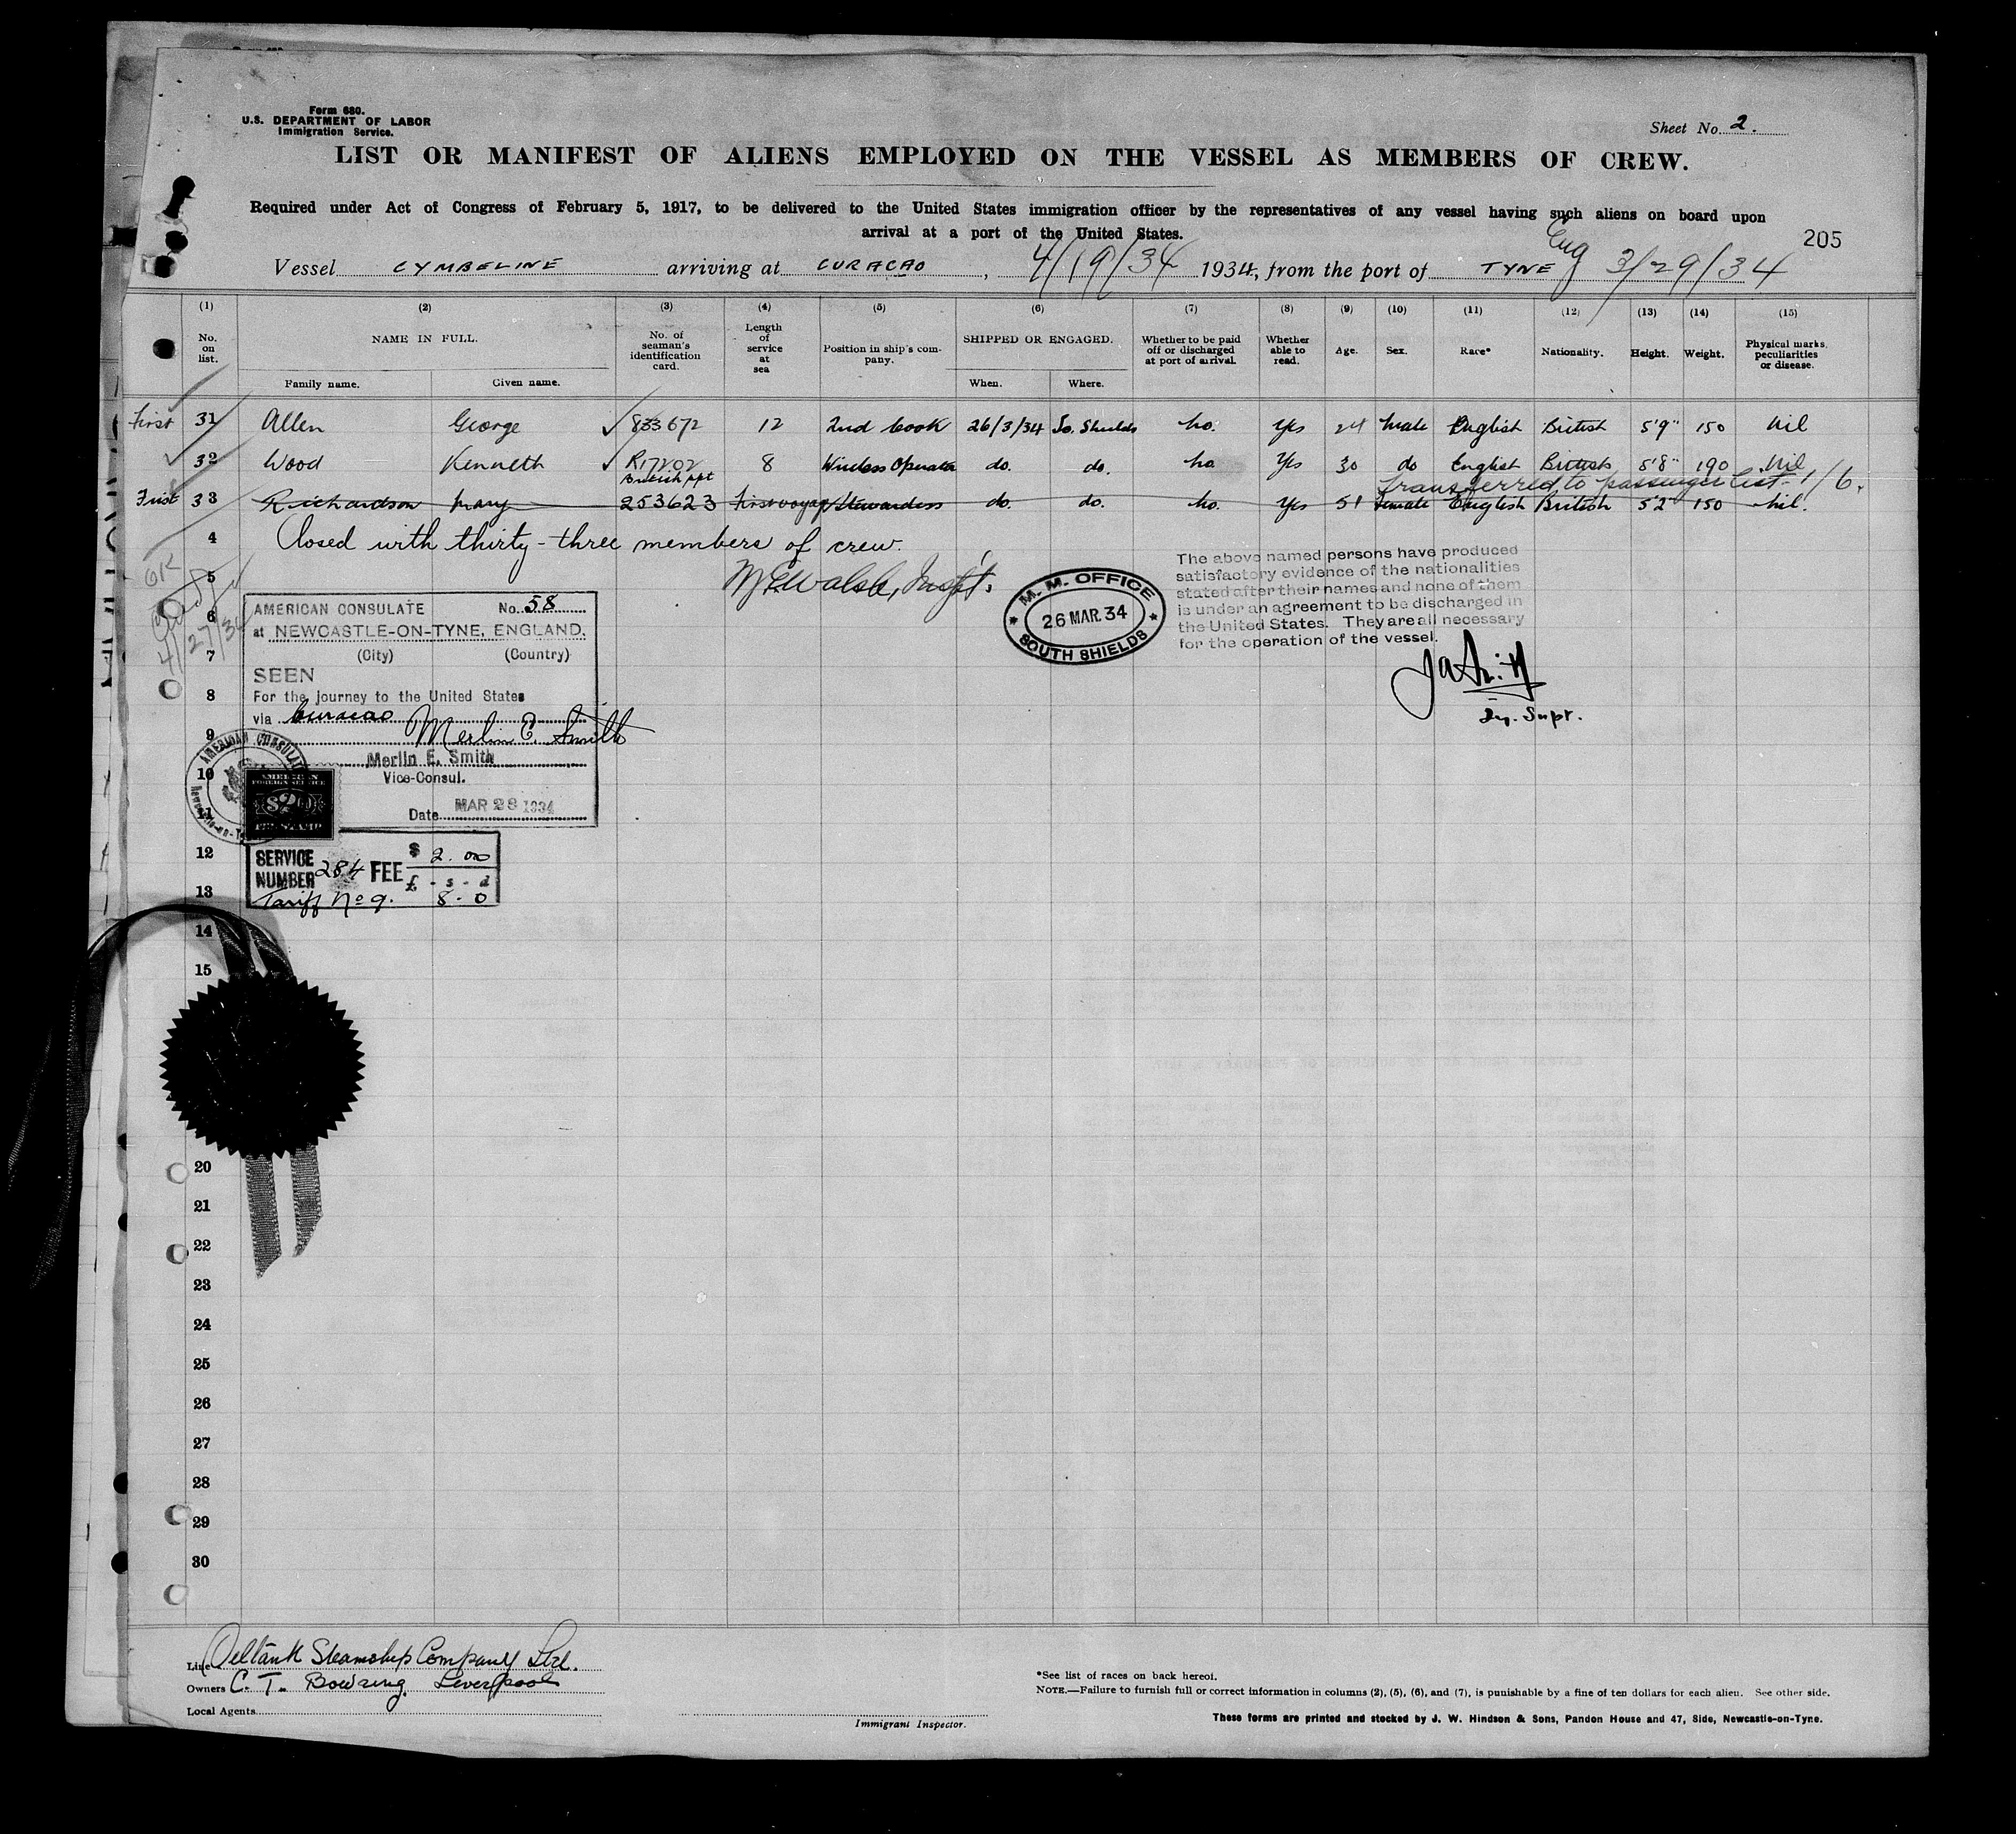 Form 680.
U.S. DEPARTMENT OF LABOR
Immigration Service.
Sheet No. 2.
LIST OR MANIFEST OF ALIENS EMPLOYED ON THE VESSEL AS MEMBERS OF CREW.
Required under Act of Congress of February 5, 1917, to be delivered to the United States immigration officer by the representatives of any vessel having such aliens on board upon
arrival at a port of the United States.
205
Vessel CYMBELINE arriving at CURACAO, 4/19/34 1934, from the port of TYNE Eng 3/29/34
(1) (2) (3) (4) (5) (6) (7) (8) (9) (10) (11) (12) (13) (14) (15)
No. on list.
NAME IN FULL.
Family name. Given name.
No. of seaman's identification card.
Length of service at sea
Position in ship's company.
SHIPPED OR ENGAGED.
When. Where.
Whether to be paid off or discharged at port of arrival.
Whether able to read.
Age.
Sex.
Race*
Nationality.
Height.
Weight.
Physical marks, peculiarities or disease.
First 31 Allen George 833672 12 2nd Cook 26/3/34 So. Shields no. Yes 24 male English British 5'9" 150 Nil
32 Wood Kenneth R17202 8 Wireless Operator do. do. no Yes 30 do English British 5'8" 190 Nil
British ppt
Transferred to passenger list 1/6.
First 33 Richardson Mary 253623 First voyage Stewardess do. do. no. Yes 51 Female English British 5'2" 150 nil.
4 Closed with thirty-three members of crew.
5
OK
4/27/34
Walsh, Inspt.
M. M. OFFICE
26 MAR. 34
SOUTH SHIELDS
The above named persons have produced
satisfactory evidence of the nationalities
stated after their names and none of them
is under an agreement to be discharged in
the United States. They are all necessary
for the operation of the vessel.
Dy. Supt.
AMERICAN CONSULATE No. 58
6
at NEWCASTLE-ON-TYNE, ENGLAND.
7
(City) (Country)
SEEN
8
For the journey to the United States
via Curacao
9
Merlin E. Smith
Merlin E. Smith
10
Vice-Consul.
11
Date MAR 28 1934
AMERICAN CONSULATE
AMERICAN
FOREIGN SERVICE
FEE STAMP
12
SERVICE NUMBER 284 FEE $ 2.00
£ - s - d
13
Tariff No 9. 8 - 0
14
15
20
21
22
23
24
25
26
27
28
29
30
Line Oeltank Steamship Company Ltd.
Owners C. T. Bowring. Liverpool
Local Agents
Immigrant Inspector.
*See list of races on back hereof.
NOTE.—Failure to furnish full or correct information in columns (2), (5), (6), and (7), is punishable by a fine of ten dollars for each alien. See other side.
These forms are printed and stocked by J. W. Hindson & Sons, Pandon House and 47, Side, Newcastle-on-Tyne.